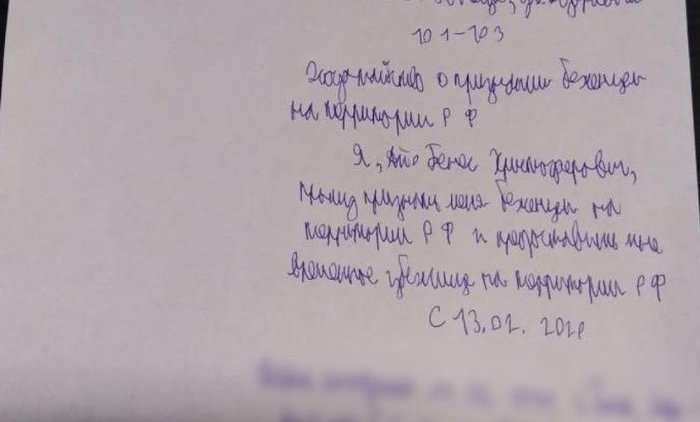 101-103
Ходатайство о признании беженцем
на территории РФ
Я, Айо Бенес Христоферович,
прошу признать меня беженцем на
территории РФ и предоставить мне
временное убежище на территории РФ
С 13.02. 202